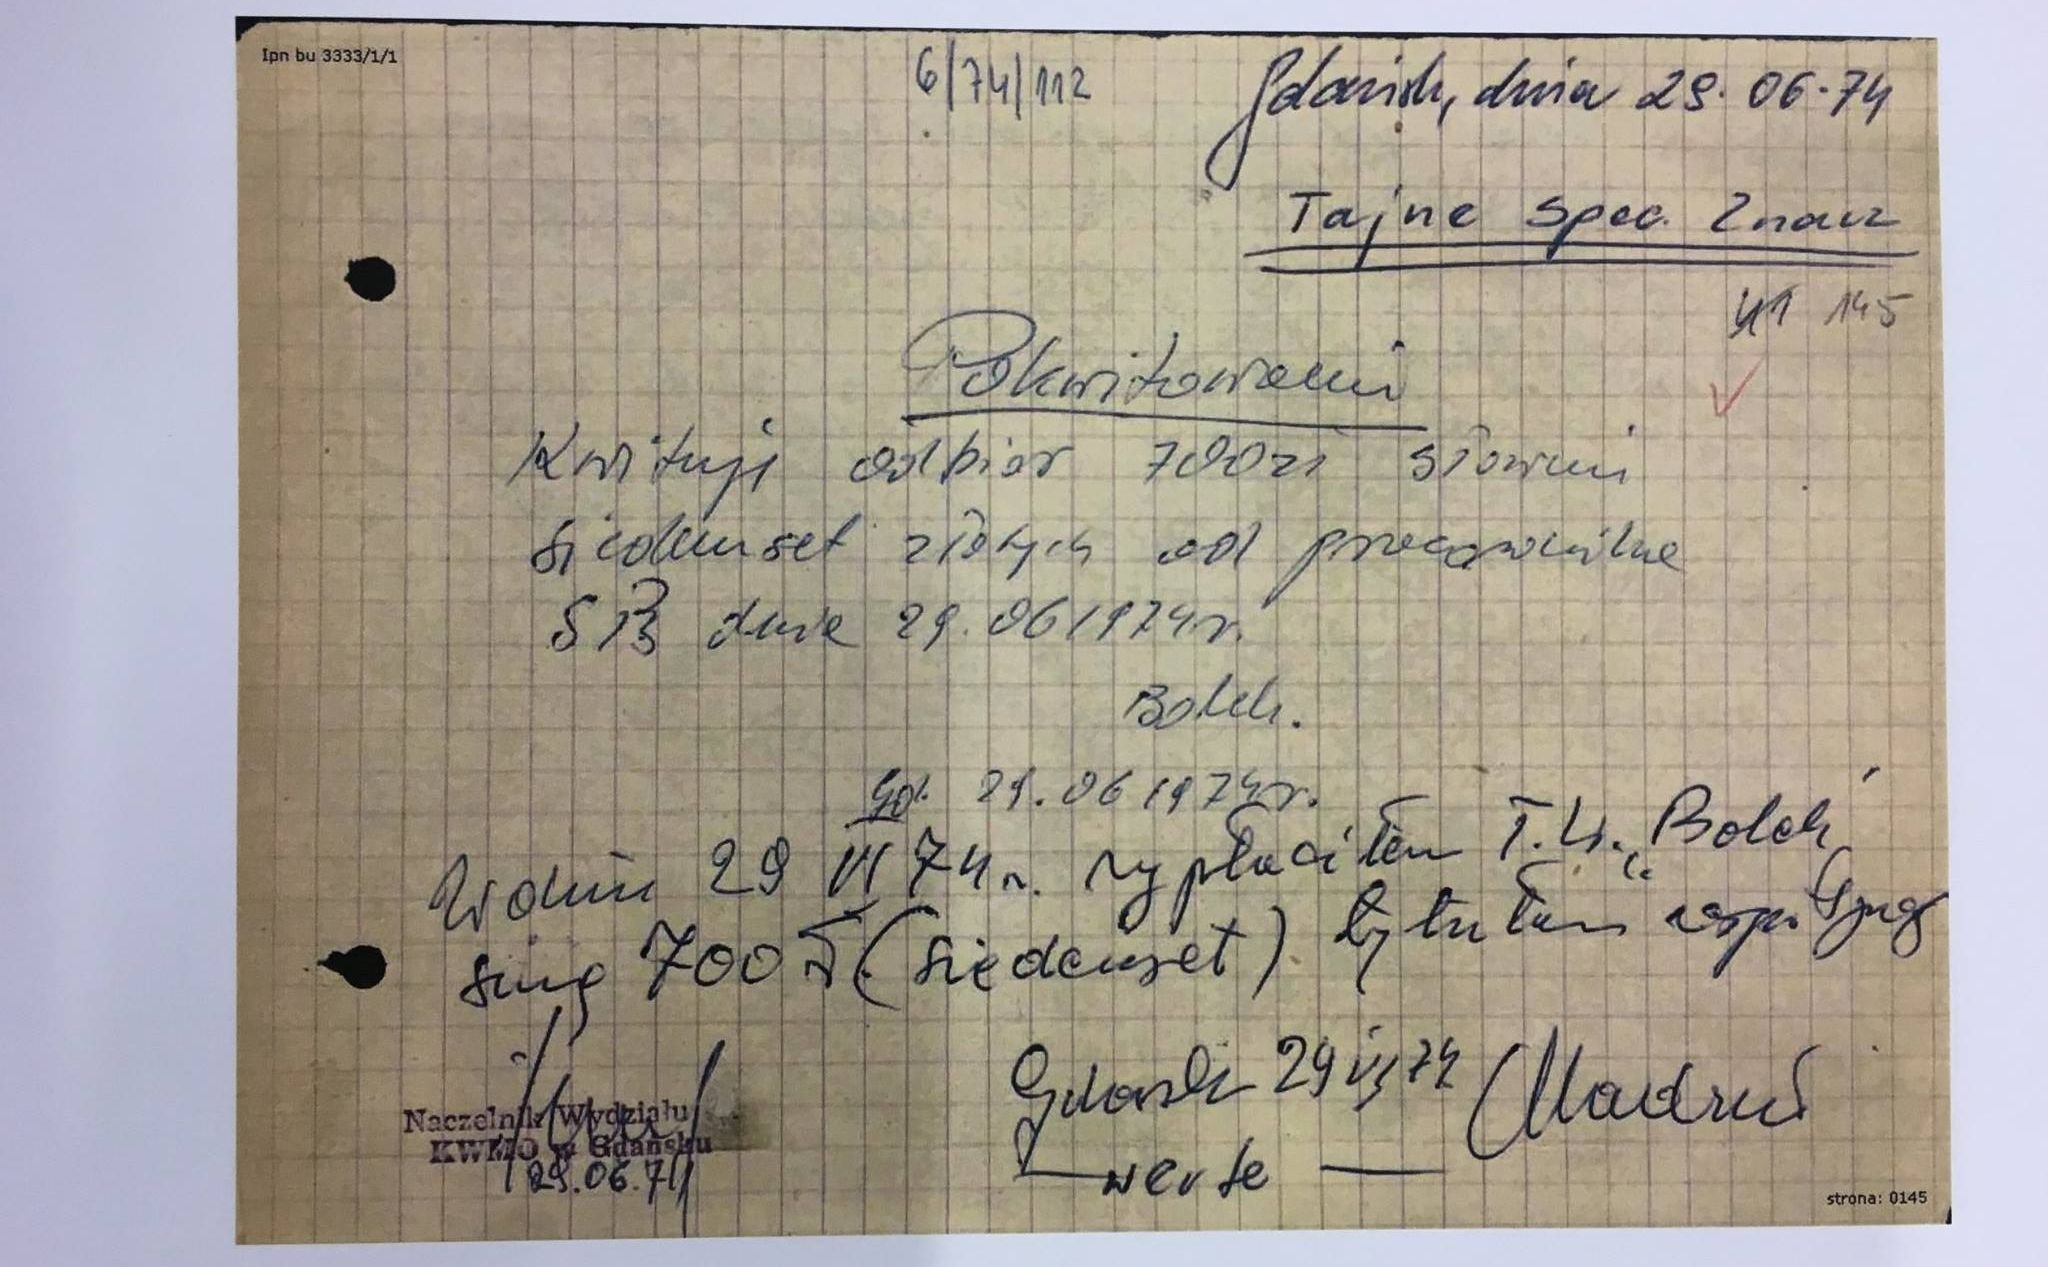 Ipn bu 3333/1/1
6/74/112
Gdańsk, dnia 29.06.74
Tajne spec. Znacz
145
Pokwitowanie
Kwituję odbiór 700 zł słownie
siedemset złotych od pracownika
SB dnia 29.06 1974 r.
Bolek.
Gd. 29.06 1974 r.
W dniu 29 VI 74 r. wypłaciłem T.W. „Bolek"
sumę 700 zł (siedemset) tytułem
Gdańsk 29 VI 74
verte
Naczelnik Wydziału
KWMO w Gdańsku
29.06.74
strona: 0145